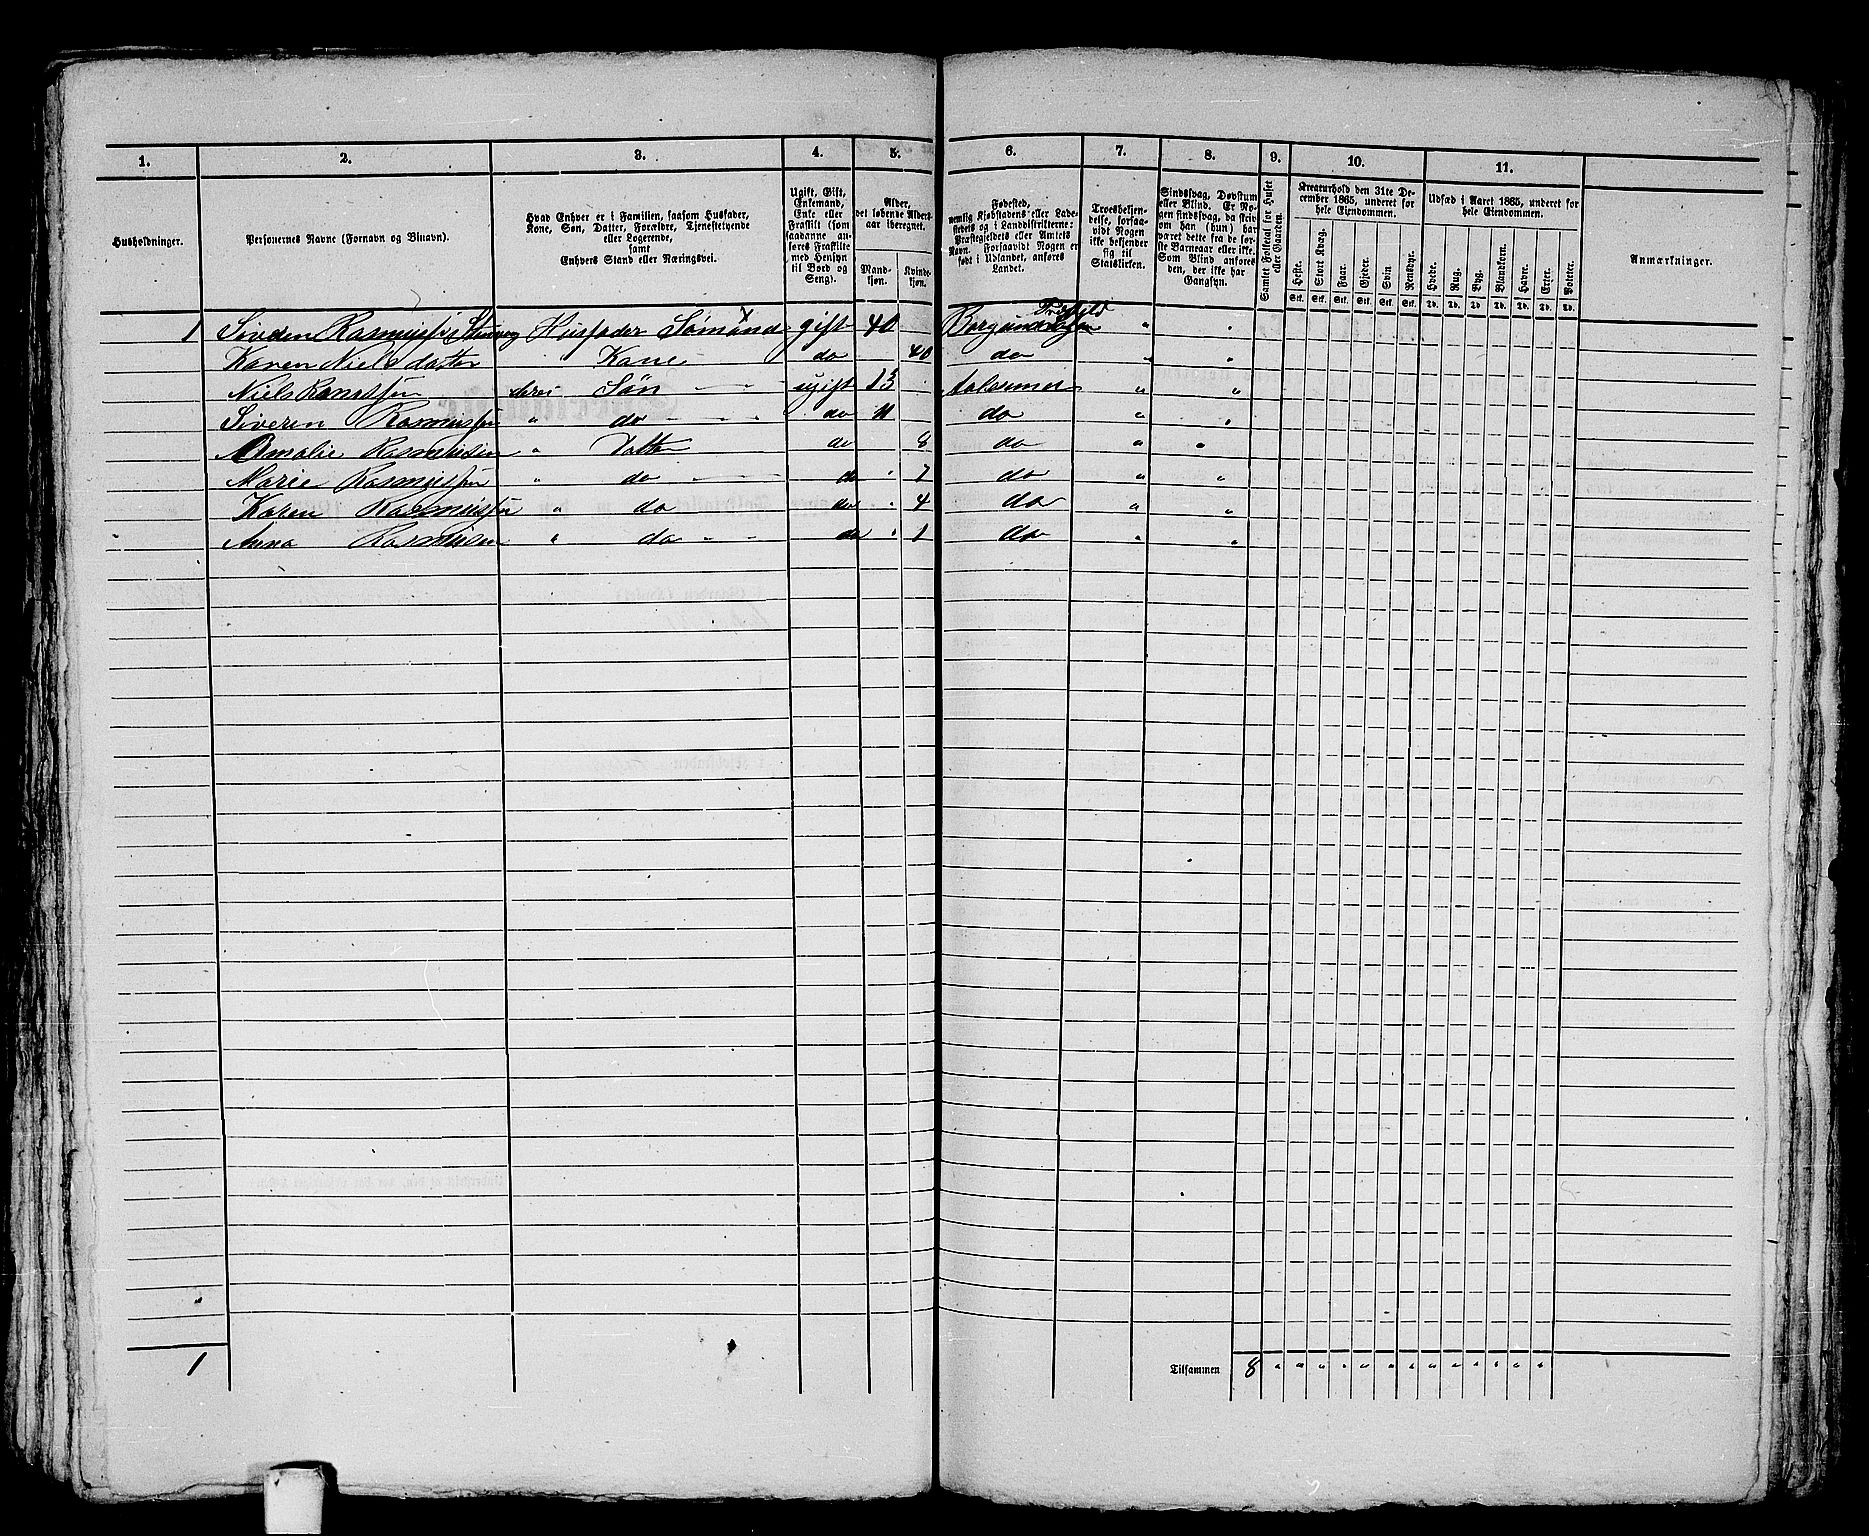 1. 2. 3. 4. 5. 6. 7. 8. 9. 10. 11.
Husholdninger.
Personernes Navne (Fornavn og Binavn).
Hvad Enhver er i Familien, saasom Husfader, Kone, Søn, Datter, Forældre, Tjenestetyende eller Logerende, samt Enhvers Stand eller Næringsvei.
Ugift, Gift, Enkemand, Enke eller Fraskilt (som saadanne anføres Fraskilte med Hensyn til Bord og Seng).
Alder, det løbende Aldersaar iberegnet.
Mandkjøn. Kvindekjøn.
Fødested, nemlig Kjøbstadens eller Ladestedets og i Landdistrikterne: Præstegjeldets eller Amtets Navn. Forsaavidt Nogen er født i Udlandet, anføres Landet.
Troesbekjendelse, forsaavidt Nogen ikke bekjender sig til Statskirken.
Sindssvag, Døvstum eller Blind. Er Nogen sindssvag, da skrives om han (hun) har været dette fra de første Barneaar eller ikke. Som Blind anføres den, der ikke har Gangsyn.
Samlet Folketal for Huset eller Gaarden.
Kreaturhold den 31te December 1865, underet for hele Eiendommen.
Heste. Stort Kvæg. Faar. Gjeder. Svin Rensdyr.
Stk. Stk. Stk. Stk. Stk. Stk.
Udsæd i Aaret 1865, underet for hele Eiendommen.
Hvede. Rug. Byg. Blandkorn. Havre. Erter. Poteter.
Td. Td. Td. Td. Td. Td. Td.
Anmærkninger.
1 Husfader Sømand gift 40 Borgund " "
Karen Nielsdatter Kone do 40 do " "
Niels deres Søn ugift 13 Aalesund " "
Siveren Rasmussen " do do 11 do " "
Amalie Rasmussen " Datter do 8 do " "
Marie Rasmussen " do do 7 do " "
Karen Rasmussen " do do 4 do " "
Anna Rasmussen " do do 1 do " "
1 Tilsammen 8 " " " " " " " " " " " "